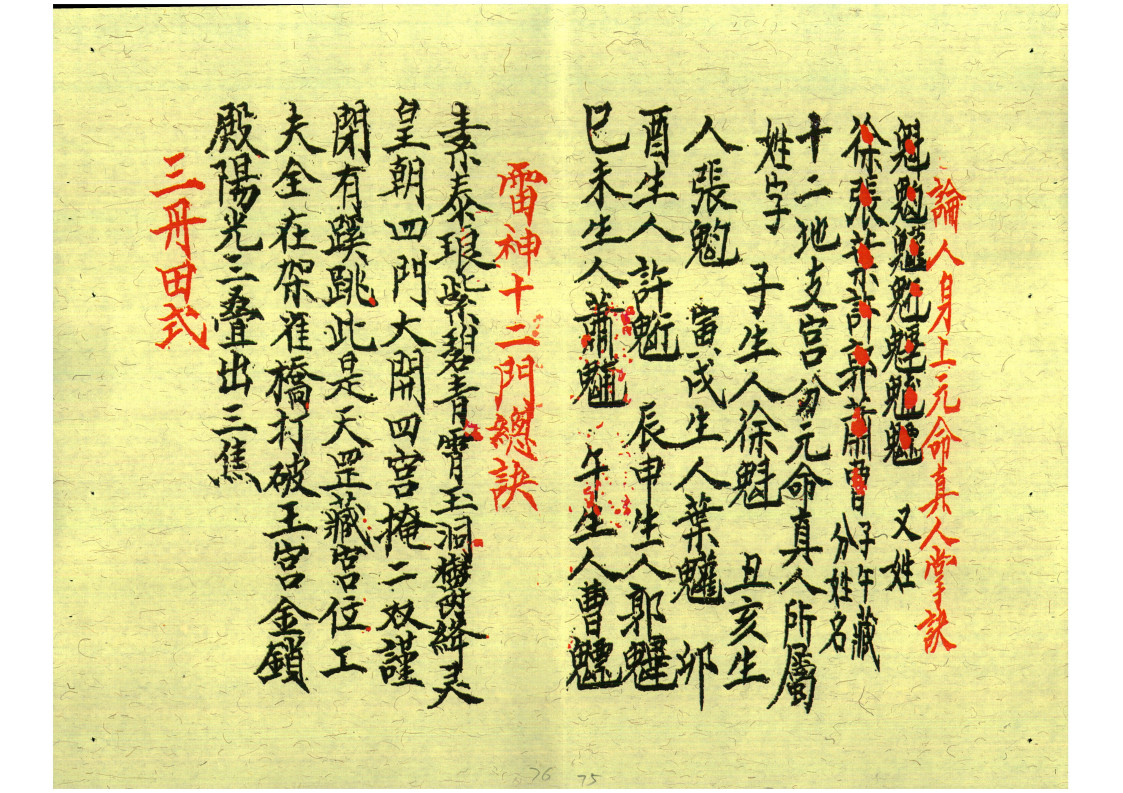 論人身上元命真人掌訣
魁䰢魓魒 又姓
徐張葉許郭蕭曹 子午藏 分姓名
十二地支宮分元命真人所屬
姓字 子生人徐魁 丑亥生
人張 寅戌生人葉 卯
酉生人許 辰申生人郭
巳未生人蕭 午生人曹魒
雷神十二門總訣
素泰琅紫碧青霄玉洞 絳灵
皇朝四門大開四宮掩二双謹
閉有蹊跳此是天罡藏宮位工
夫全在架雀橋打破王宮金鎖
殿陽光三叠出三焦
三丹田式
76 75